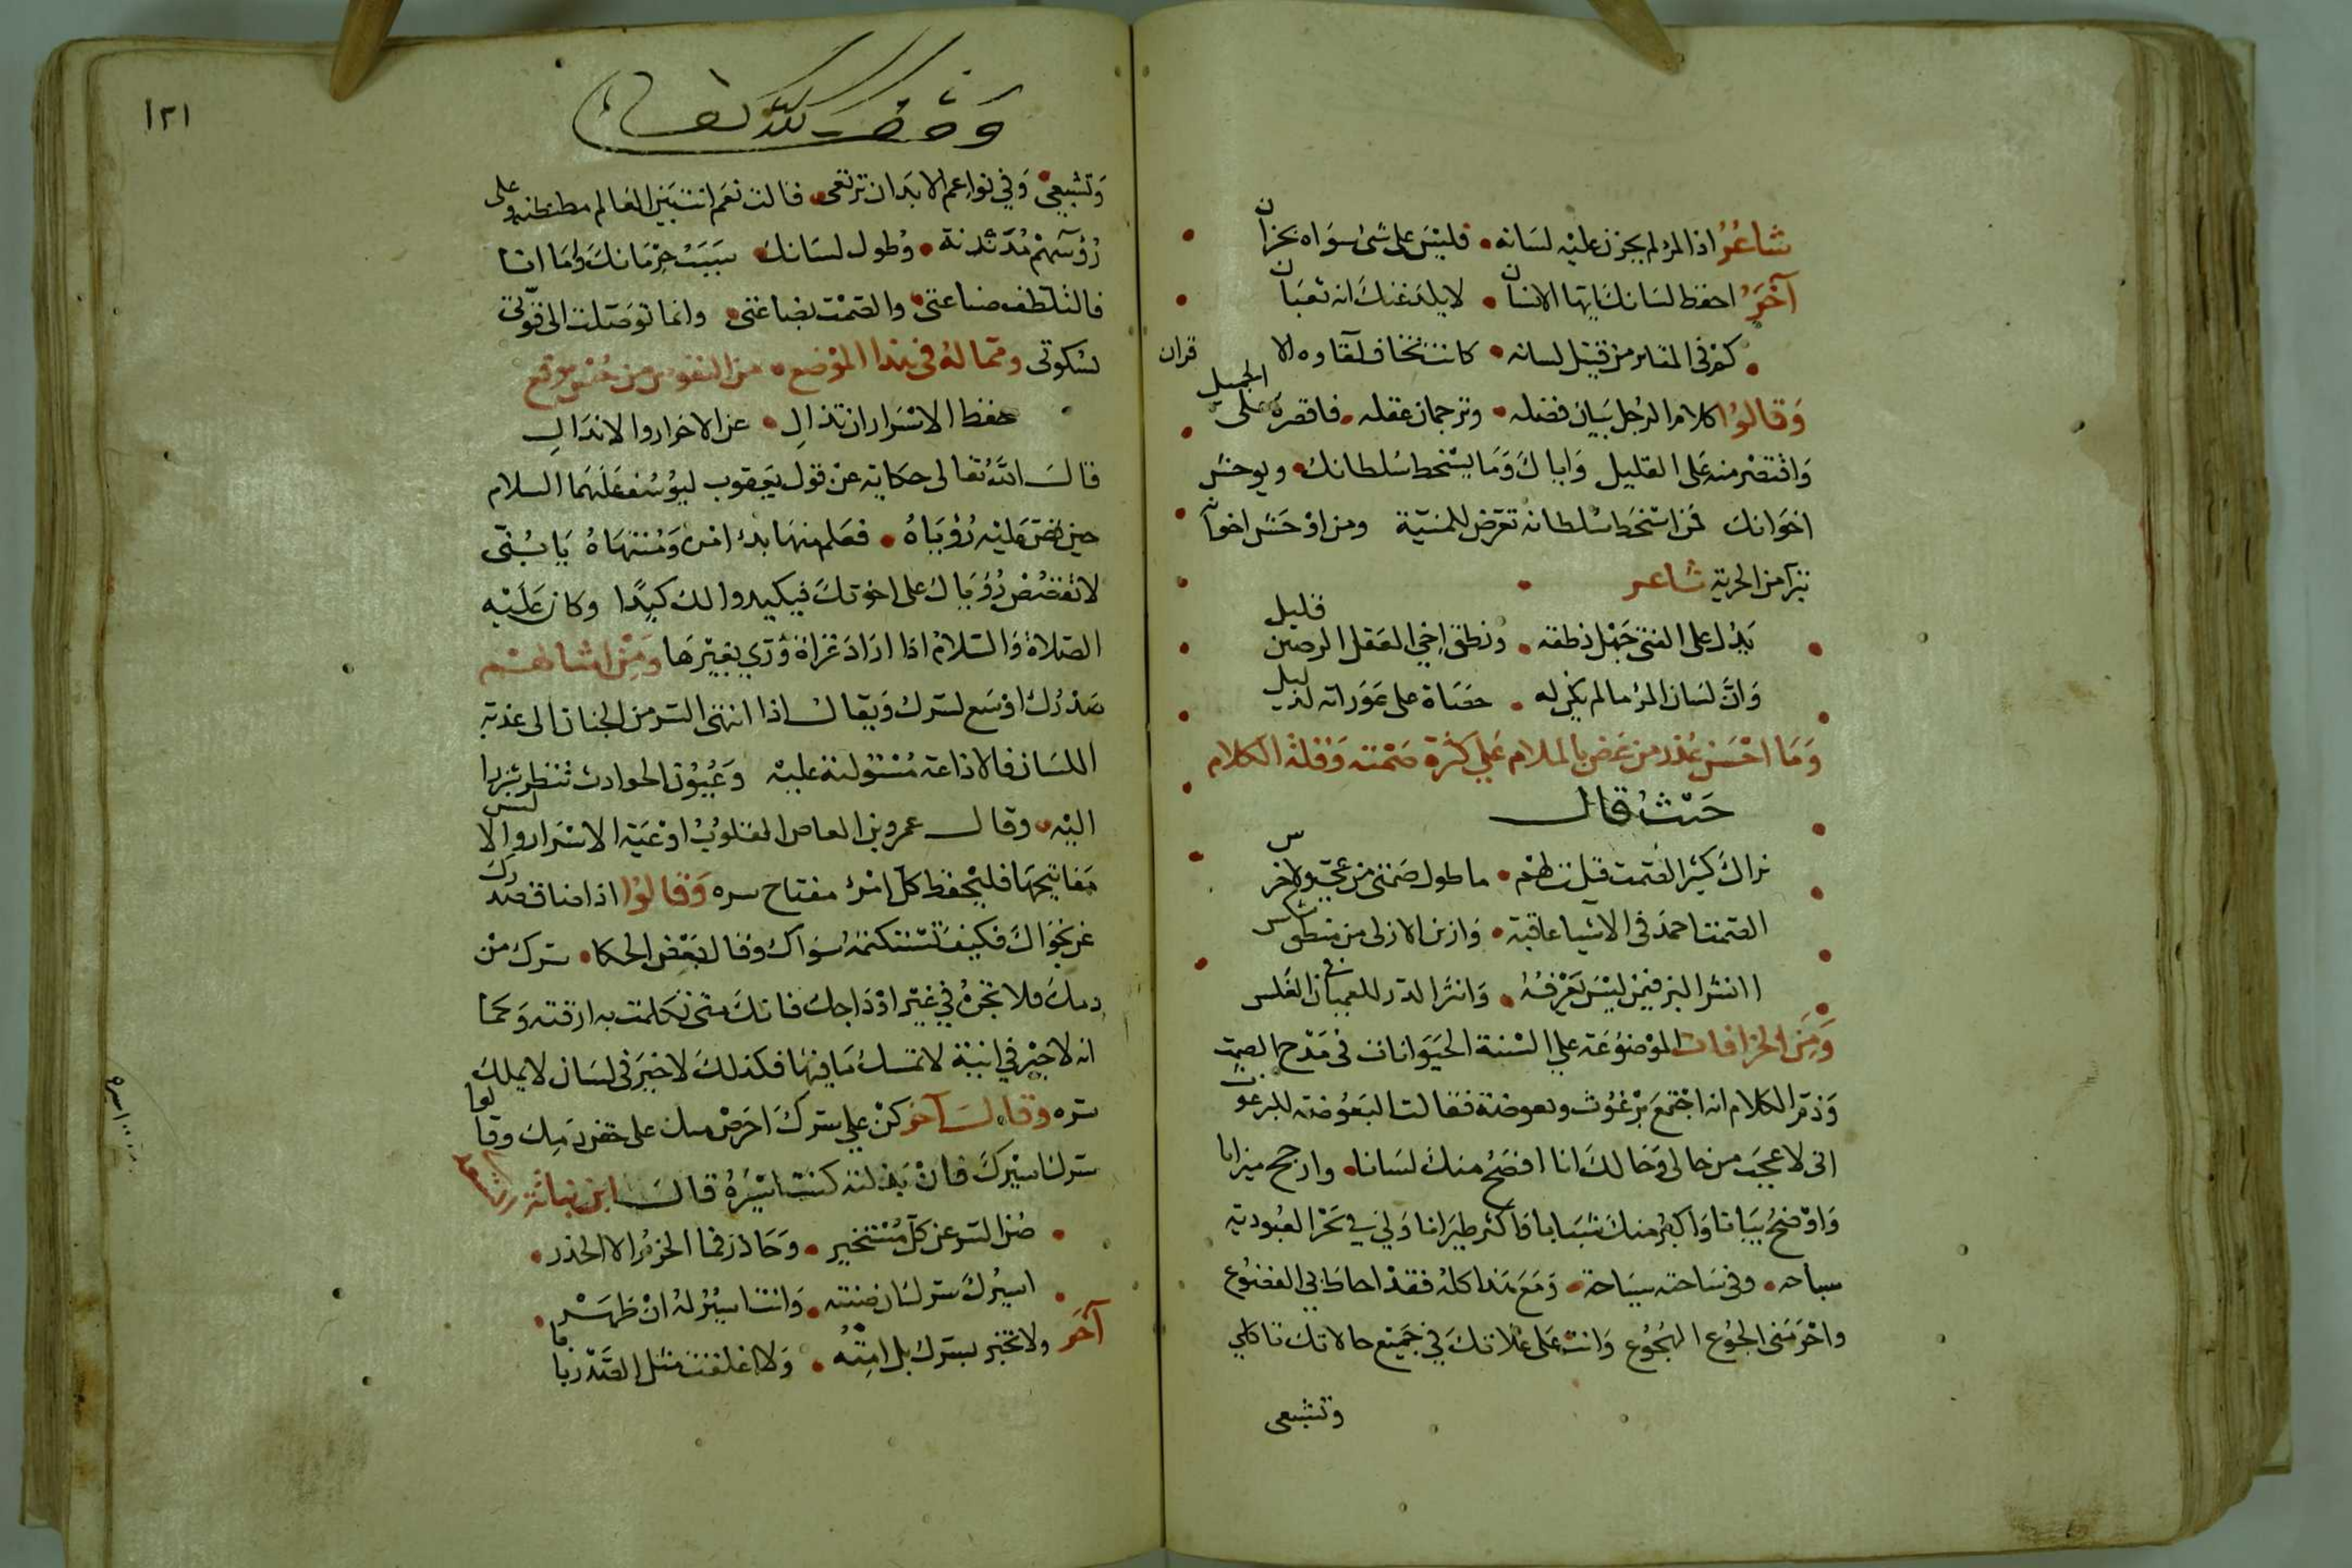 شاعر اذا المرء لم يخزن عليه لسانه • فليس على شئ سواه بخزان
آخر احفظ لسانك ايها الانسان • لا يلدغنك انه ثعبان
كم فى المقابر من قتيل لسانه • كانت تخاف لقاوه الاقران
وقالوا كلام الرجل بيان فضله • وترجمان عقله • فاقصره على الجميل
واقتصر منه على القليل واياك وما يسخط سلطانك • ويوحش
اخوانك فمن اسخط سلطانه تعرض للمنية ومن اوحش اخوانه
تبرا من الحرية شاعر
يدل على الفتى جهل نطقه • ونطق اخي العقل الرصين قليل
وان لسان المرء ما لم يكن له • حصاة على عوراته لدليل
وما احسن عذر من عرض بالملام علي كثرة صمته وقلة الكلام
حيث قال
نراك كثير الصمت قلت لهم • ما طول صمتى من عي ولا خرس
الصمت احمد فى الاشيا عاقبة • وازين الازلى من منطق شكس
اانشر البز فيمن ليس يعرفه • وانثر الدر للعميان في الغلس
ومن الخرافات الموضوعة علي السنة الحيوانات فى مدح الصمت
وذم الكلام انه اجتمع برغوث وبعوضة فقالت البعوضة للبرغوث
انى لاعجب من حالى وحالك انا افصح منك لسانا • وارجح ميزانا
واوضح بيانا واكبر منك شبابا واكثر طيرانا ولي في بحر العبودية
سباحه • وفى ساحته سياحة • ومع هذا كله فقد احاط بي الفضوع
واحرمنى الجوع الهجوع وانت على علاتك في جميع حالاتك تاكلي
وتشبعى
وقف لله تعالى
١٢١
وتشبعى • وفي نواعم الابدان ترتعى • فقالت نعم انت بين العالم مطنطنه وعلى
رؤسهم مدندنة • وطول لسانك • سبب حرمانك واما انا
فالتلطف صناعتى • والصمت بضاعتى • وانما توصلت الى قوتى
بسكوتى ومما له فى هذا الموضع • من النفوس من حسن موقع
حفظ الاسرار ان تذال • عن الاحرار والانذال
قال الله تعالى حكاية عن قول يعقوب ليوسف عليهما السلام
حين قص عليه رؤياه • فعلم منها بدء امره ومنتهاه يا بنى
لا تقصص رؤياك على اخوتك فيكيدوا لك كيدا وكان عليه
الصلاة والسلام اذا اراد غزاة ورى بغيرها ومن امثالهم
صدرك اوسع لسرك ويقال اذا انتهى السر من الجنان الى عذبة
اللسان فالاذاعة مستولية عليه وعيون الحوادث تنظر شزرا
اليه • وقال عمرو بن العاص القلوب اوعية الاسرار والالسن
مفاتيحها فليحفظ كل امرئ مفتاح سره وقالوا اذا ضاق صدرك
عن نجواك فكيف تستكتمه سواك وقال بعض الحكا • سرك من
دمك فلا تجره في غير اوداجك فانك متى تكلمت به ارقته وكما
انه لا خير في انية لا تمسك ما فيها فكذلك لا خير فى لسان لا يملك
سره وقال آخر كن علي سرك احرص منك على حقن دمك وقالوا
سرك اسيرك فان بذلته كنت اسيره قال ابن نباتة
صن السر عن كل مستخبر • وحاذر فما الحزم الا الحذر •
اسيرك سرك ان صنته • وانت اسير له ان ظهر •
آخر ولا تخبر بسرك بل امته • ولا